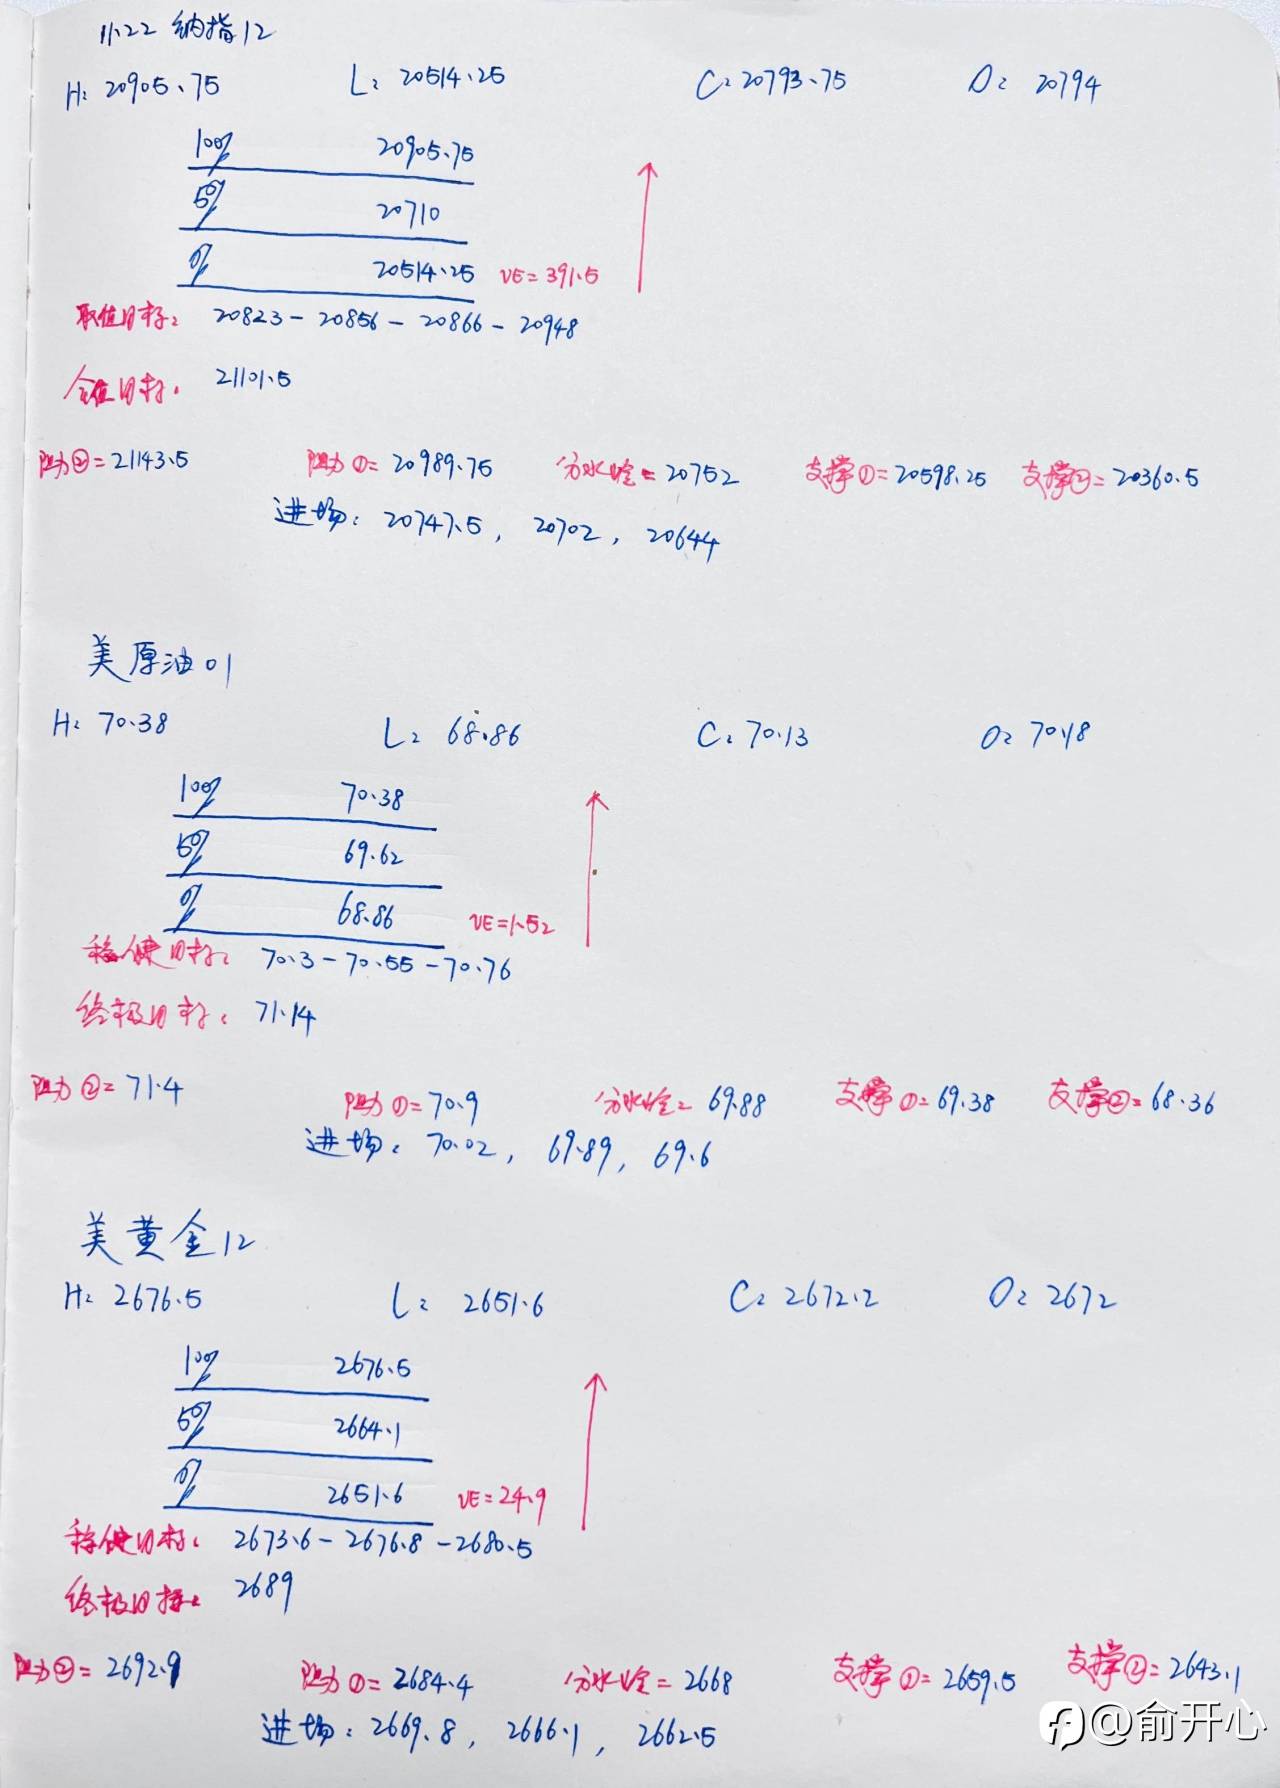 11.22 纳指12
H: 20905.75 L: 20514.25 C: 20793.75 O: 20794
100% 20905.75
50% 20710
0% 20514.25 VE=391.5
取值目标: 20823-20856-20866-20948
全值目标: 21101.5
阻力②=21143.5 阻力①=20989.75 分水岭=20752 支撑①=20598.25 支撑②=20360.5
进场: 20747.5, 20702, 20644
美原油01
H: 70.38 L: 68.86 C: 70.13 O: 70.18
100% 70.38
50% 69.62
0% 68.86 VE=1.52
稳健目标: 70.3-70.55-70.76
终极目标: 71.14
阻力②=71.4 阻力①=70.9 分水岭: 69.88 支撑①=69.38 支撑②=68.36
进场: 70.02, 69.89, 69.6
美黄金12
H: 2676.5 L: 2651.6 C: 2672.2 O: 2672
100% 2676.5
50% 2664.1
0% 2651.6 VE=24.9
稳健目标: 2673.6-2676.8-2680.5
终极目标: 2689
阻力②=2692.9 阻力①=2684.4 分水岭=2668 支撑①=2659.5 支撑②=2643.1
进场: 2669.8, 2666.1, 2662.5
@俞开心